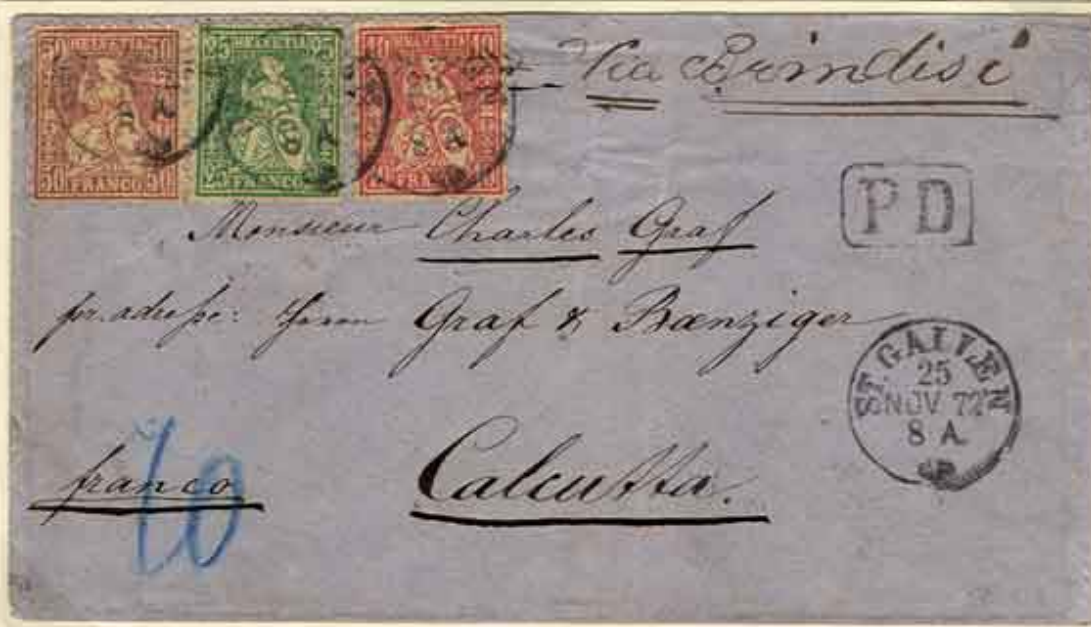 50 HELVETIA 50
50 FRANCO 50
25 HELVETIA 25
25 FRANCO 25
10 HELVETIA 10
10 10
Via Brindisi
PD
Monsieur Charles Graf
pr. adresse: Herren Graf & Bænziger
ST. GALLEN
25
NOV. 72
8 A.
franco
Calcutta.